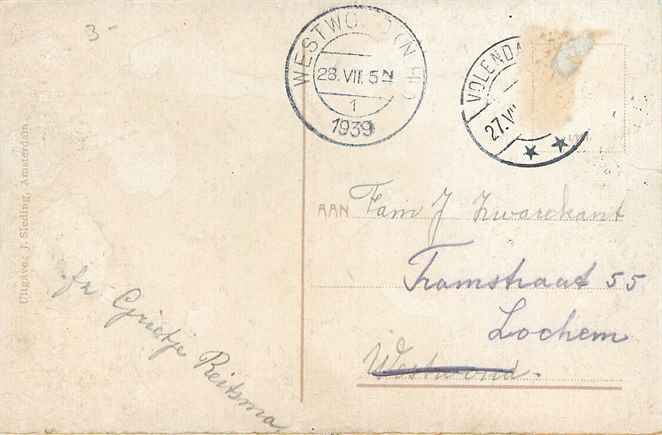 3-
WESTWOUD (N.H.)
28.VII.5N
1
1939
VOLENDA
27.VII
Uitgave J. Sleding, Amsterdam.
AAN Fam J Zwarekant
Tramstraat 55
Lochem
Westwoud.
fr Grietje Reitsma